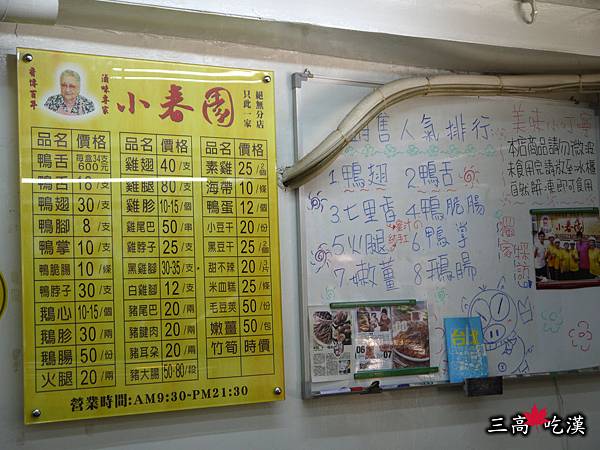 香傳百年
滷味專家
小春園
絕無分店
只此一家
品名 價格 品名 價格 品名 價格
鴨舌 每盒34支600元 雞翅 40/支 素雞 25/2個
鴨舌 18/支 雞腿 80/支 海帶 10/條
鴨翅 30/支 雞胗 10-15/個 鴨蛋 12/個
鴨腳 8/支 雞尾巴 50/串 小豆干 20/份
鴨掌 10/支 雞脖子 25/支 黑豆干 25/2個
鴨脆腸 10/條 黑雞腳 30-35/支 甜不辣 20/片
鴨脖子 30/支 白雞腳 12/支 米血糕 25/份
鵝心 10-15/個 豬尾巴 20/兩 毛豆莢 50/份
鵝胗 30/份 豬腱肉 20/兩 嫩薑 50/包
鵝腸 50/份 豬耳朵 20/兩 竹筍 時價
火腿 20/兩 豬大腸 50-80/段
營業時間:AM9:30-PM21:30
銷售人氣排行
1鴨翅 2鴨舌
3七里香 4鴨脆腸
5火腿 6鴨掌
7嫩薑 8鵝腸
美味小叮嚀
本店商品請勿微波
未食用完請放至冰櫃
自然解凍即可食用
小春園
06
07
台北
三高 吃漢